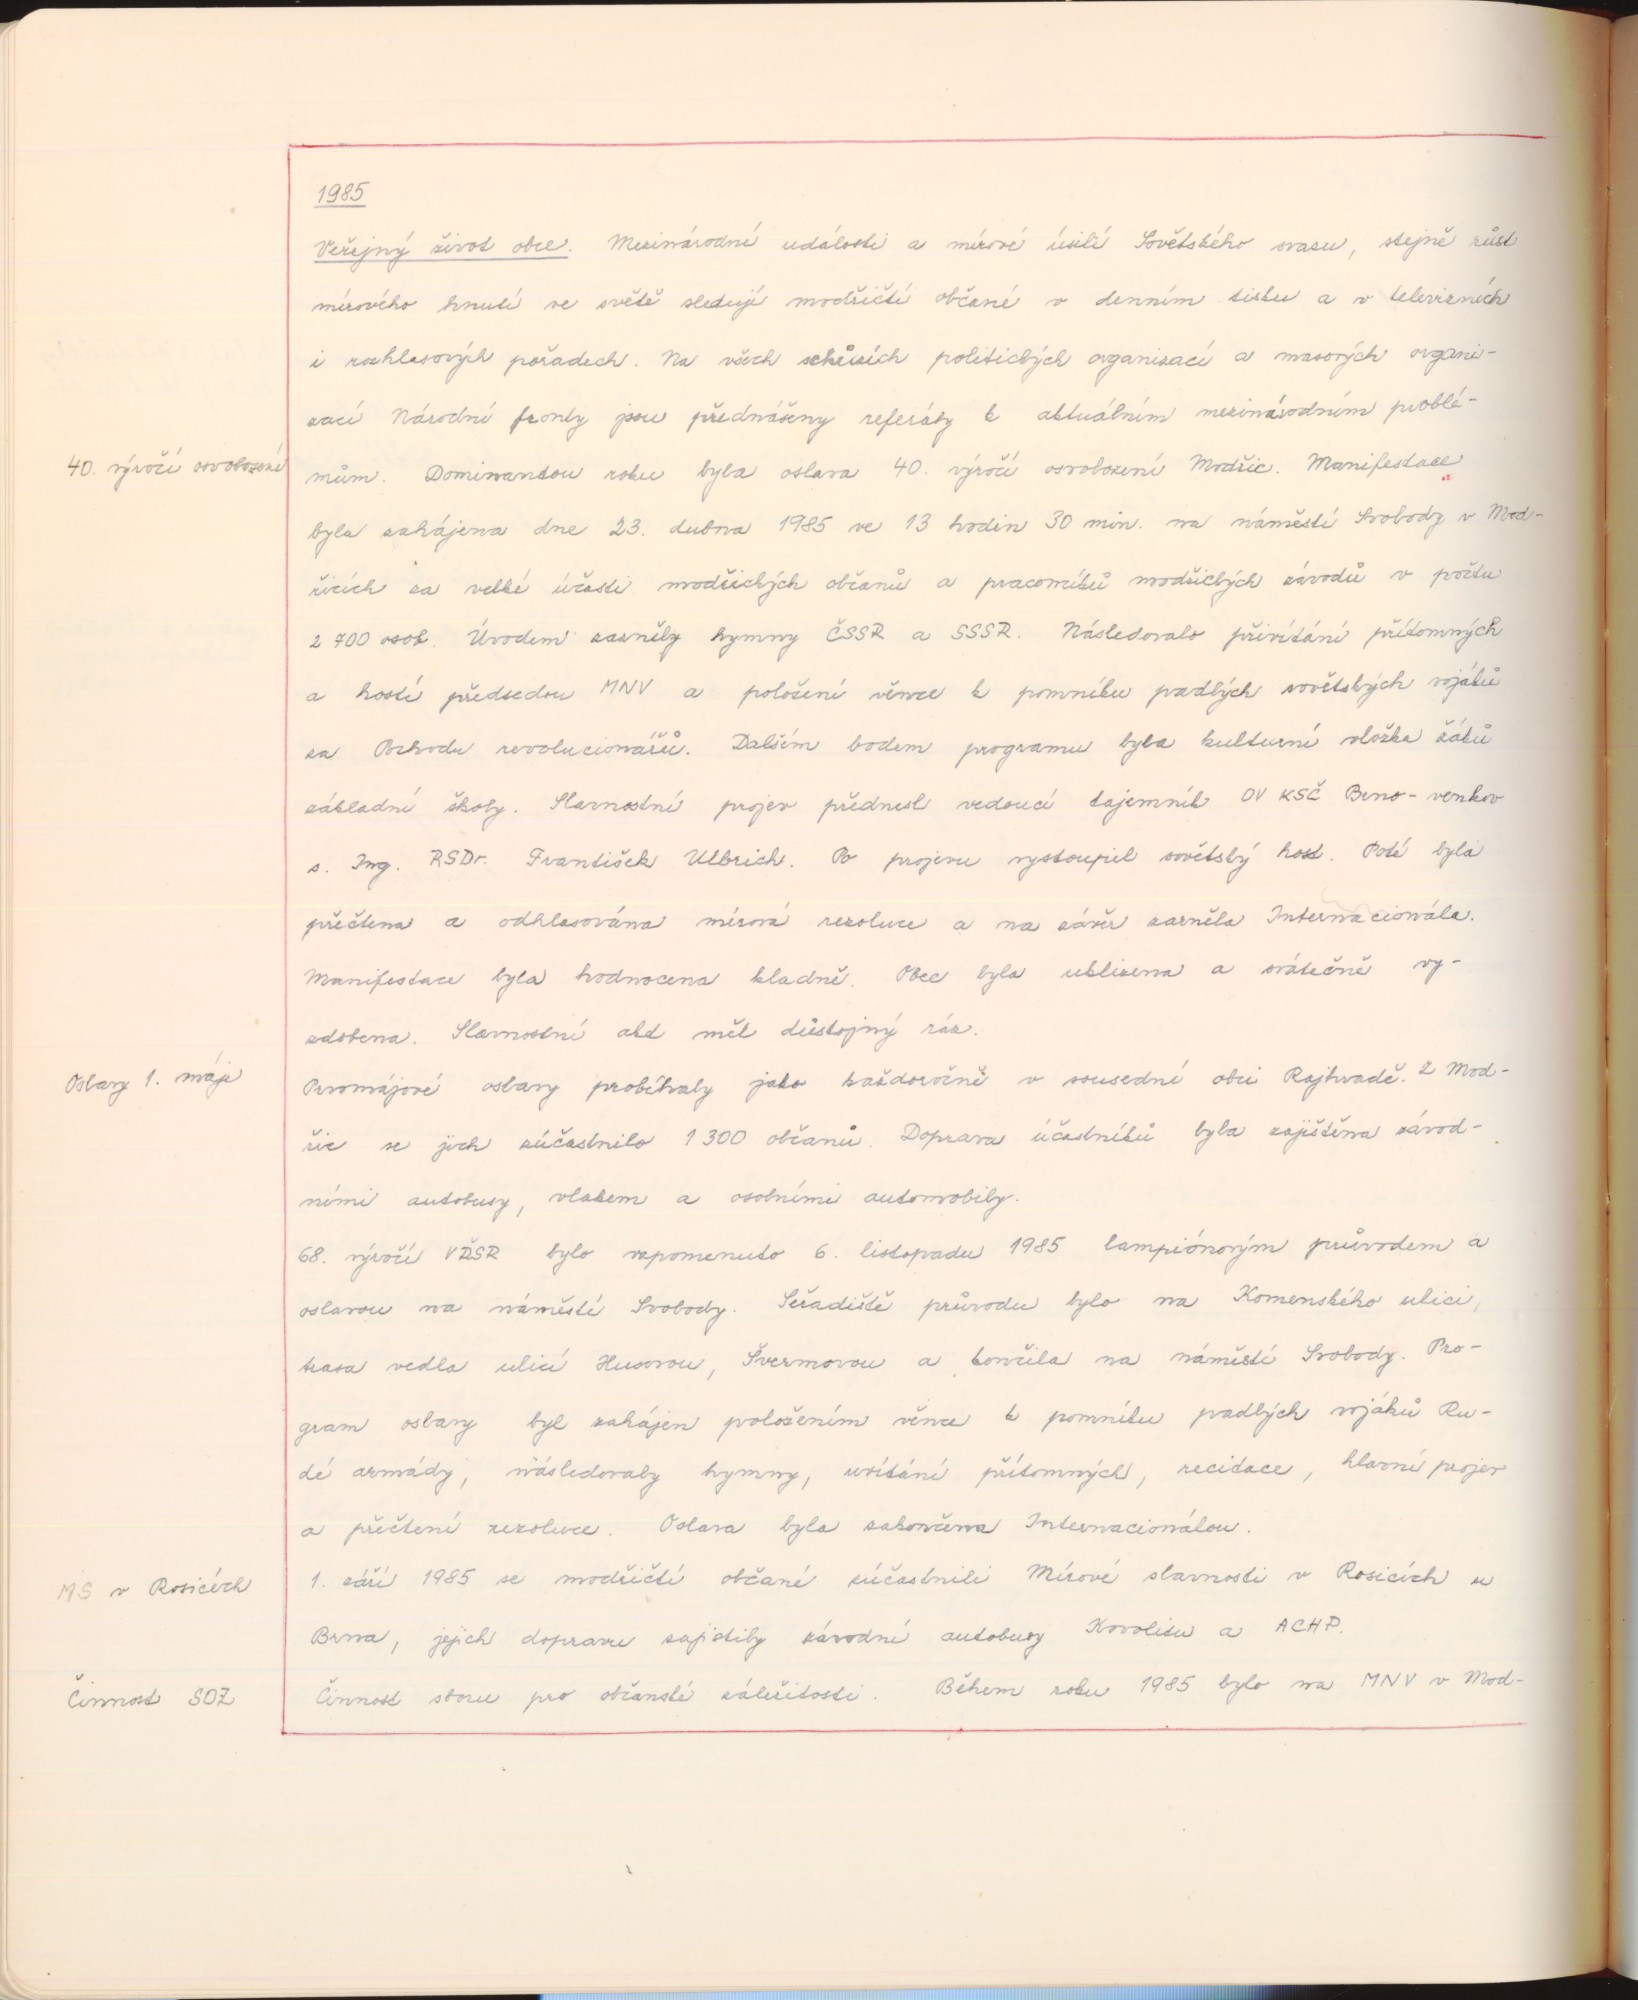 1985
Veřejný život obce. Mezinárodní události a mírové úsilí Sovětského svazu, stejně růst
mírového hnutí ve světě sledují modřičtí občané v denním tisku a v televizních
i rozhlasových pořadech. Na všech schůzích politických organizací a masových organi-
zací Národní fronty jsou přednášeny referáty k aktuálním mezinárodním problé-
40. výročí osvobození
mům. Dominantou roku byla oslava 40. výročí osvobození Modřic. Manifestace
byla zahájena dne 23. dubna 1985 ve 13 hodin 30 min. na náměstí Svobody v Mod-
řicích za velké účasti modřických občanů a pracovníků modřických závodů v počtu
2 700 osob. Úvodem zazněly hymny ČSSR a SSSR. Následovalo přivítání přítomných
a hostí předsedou MNV a položení věnce k pomníku padlých sovětských vojáků
za Pochodu revolucionářů. Dalším bodem programu byla kulturní vložka žáků
základní školy. Slavnostní projev přednesl vedoucí tajemník OV KSČ Brno-venkov
s. Ing. RSDr. František Ulbrich. Po projevu vystoupil sovětský host. Poté byla
přečtena a odhlasována mírová rezoluce a na závěr zazněla Internacionála.
Manifestace byla hodnocena kladně. Obec byla uklizena a svátečně vy-
zdobena. Slavnostní akt měl důstojný ráz.
Oslavy 1. máje
Prvomájové oslavy probíhaly jako každoročně v sousední obci Rajhradě. Z Mod-
řic se jich zúčastnilo 1 300 občanů. Doprava účastníků byla zajištěna závod-
ními autobusy, vlakem a osobními automobily.
68. výročí VŘSR bylo vzpomenuto 6. listopadu 1985 lampiónovým průvodem a
oslavou na náměstí Svobody. Seřadiště průvodu bylo na Komenského ulici,
trasa vedla ulicí Husovou, Švermovou a končila na náměstí Svobody. Pro-
gram oslavy byl zahájen položením věnce k pomníku padlých vojáků Ru-
dé armády, následovaly hymny, uvítání přítomných, recitace, hlavní projev
a přečtení rezoluce. Oslava byla zakončena Internacionálou.
MS v Rosicích
1. září 1985 se modřičtí občané zúčastnili Mírové slavnosti v Rosicích u
Brna, jejich dopravu zajistily závodní autobusy Kovolitu a ACHP.
Činnost SOZ
Činnost sboru pro občanské záležitosti. Během roku 1985 bylo na MNV v Mod-